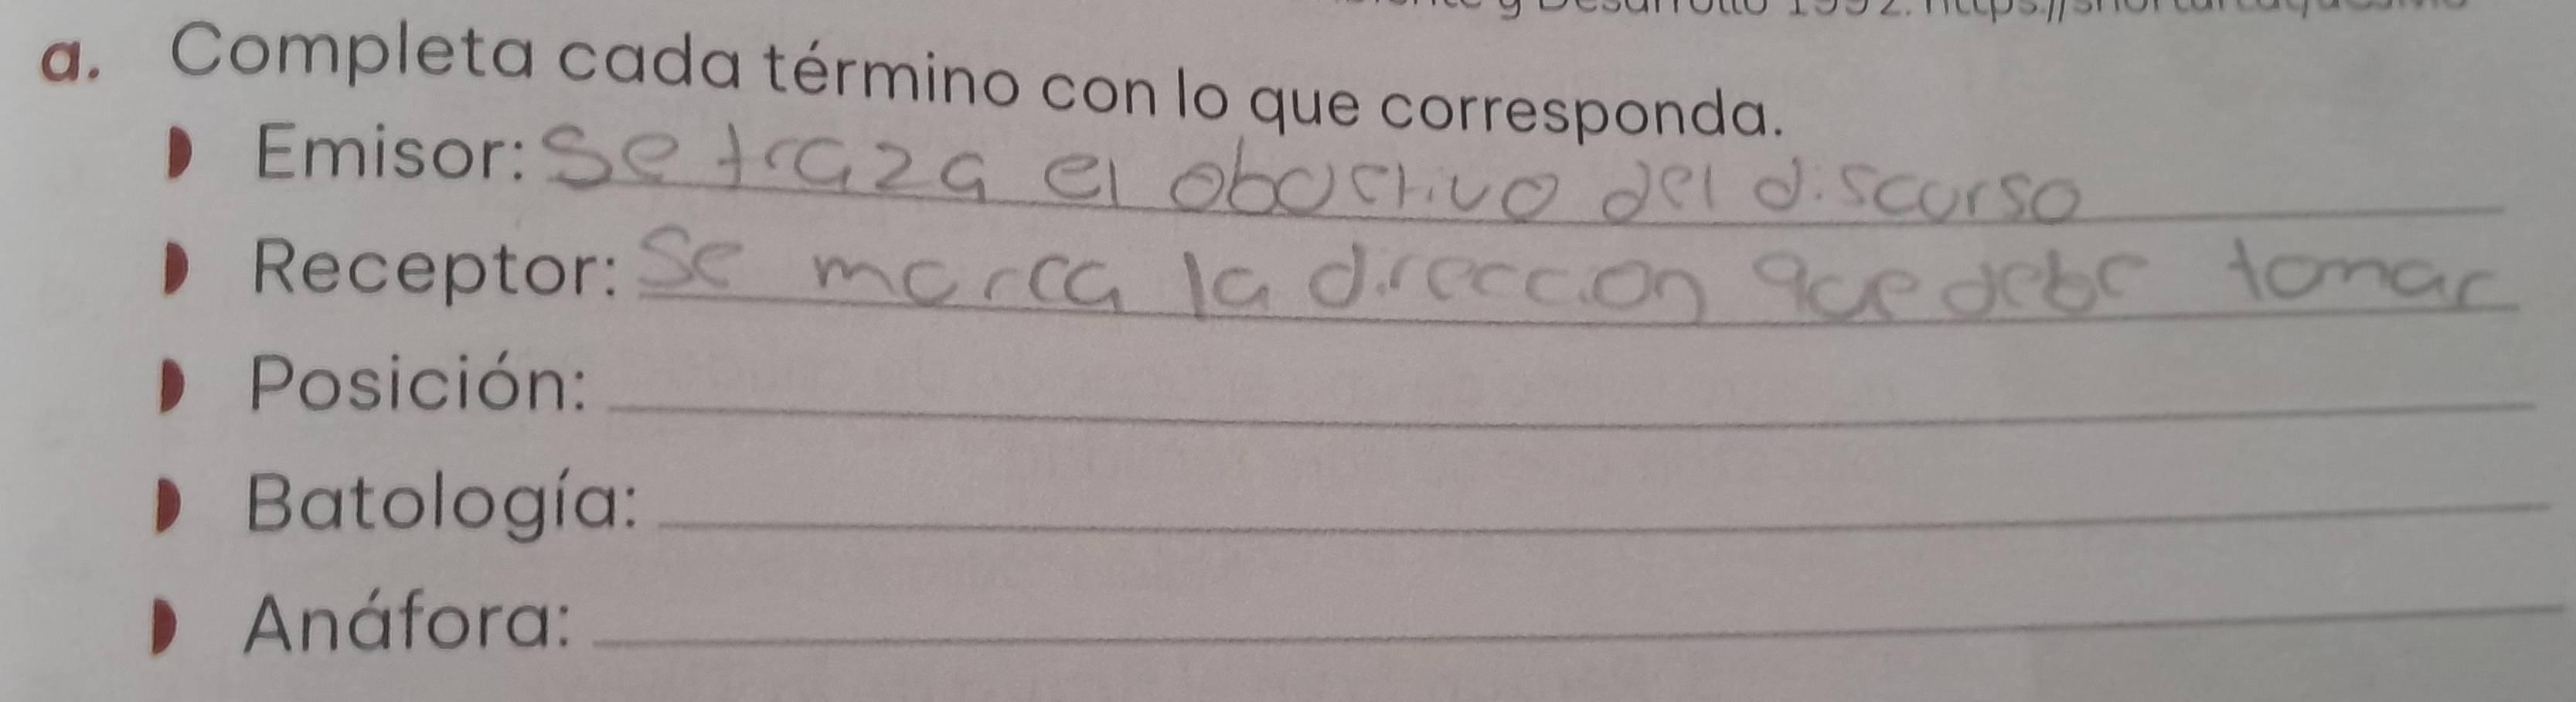 y Desarrollo 1992. https://
a. Completa cada término con lo que corresponda.
Emisor: Se traza el obactivo del discurso
Receptor: Se marca la direccion que debe tomar
Posición:
Batología:
Anáfora: